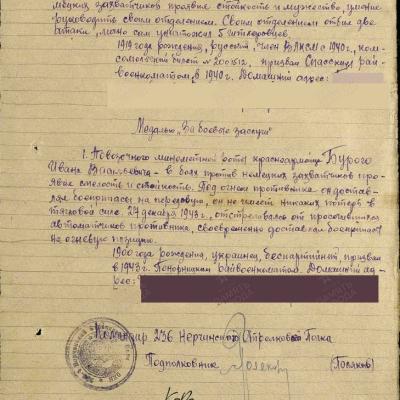 мецких захватчиков проявив стойкость и мужество, умение
руководить своим отделением. Своим отделением отбил две
атаки, лично сам уничтожил 5 гитлеровцев.
1919 года рождения, русский, член ВЛКСМ с 1940 г., ком-
сомольский билет № призван Спасским рай-
военкоматом в 1940 г. Домашний адрес:
Медалью „За боевые заслуги"
1. Повозочного минометной роты красноармейца Бурого
Ивана - в боях против немецких захватчиков про-
явил смелость и стойкость. Под огнем противника он достав-
лял боеприпасы на передовую, он не имеет никаких потерь в
тягловой силе. 27 декабря 1943 г. отстреливаясь от просочившихся
автоматчиков противника, своевременно доставил боеприпасы
на огневую позицию.
1900 года рождения, украинец, беспартийный, призван
в 1943 г. Понорницким райвоенкоматом. Домашний ад-
рес:
Командир 236 Нерчинского Стрелкового Полка
Подполковник Поляков (Поляков)